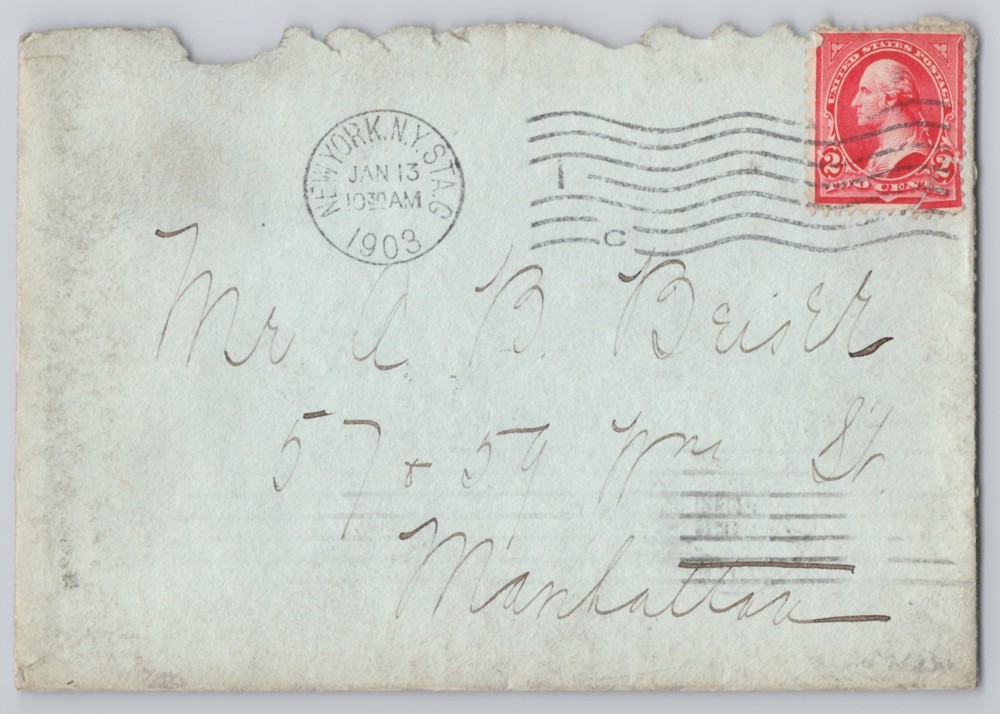 UNITED STATES POSTAGE
2 2
TWO CENTS
NEW YORK, N.Y. STA. G
JAN 13
10 30 AM
1903
1
C
Mr. A. B. Beiser
57 + 59 Wm St.
Manhattan